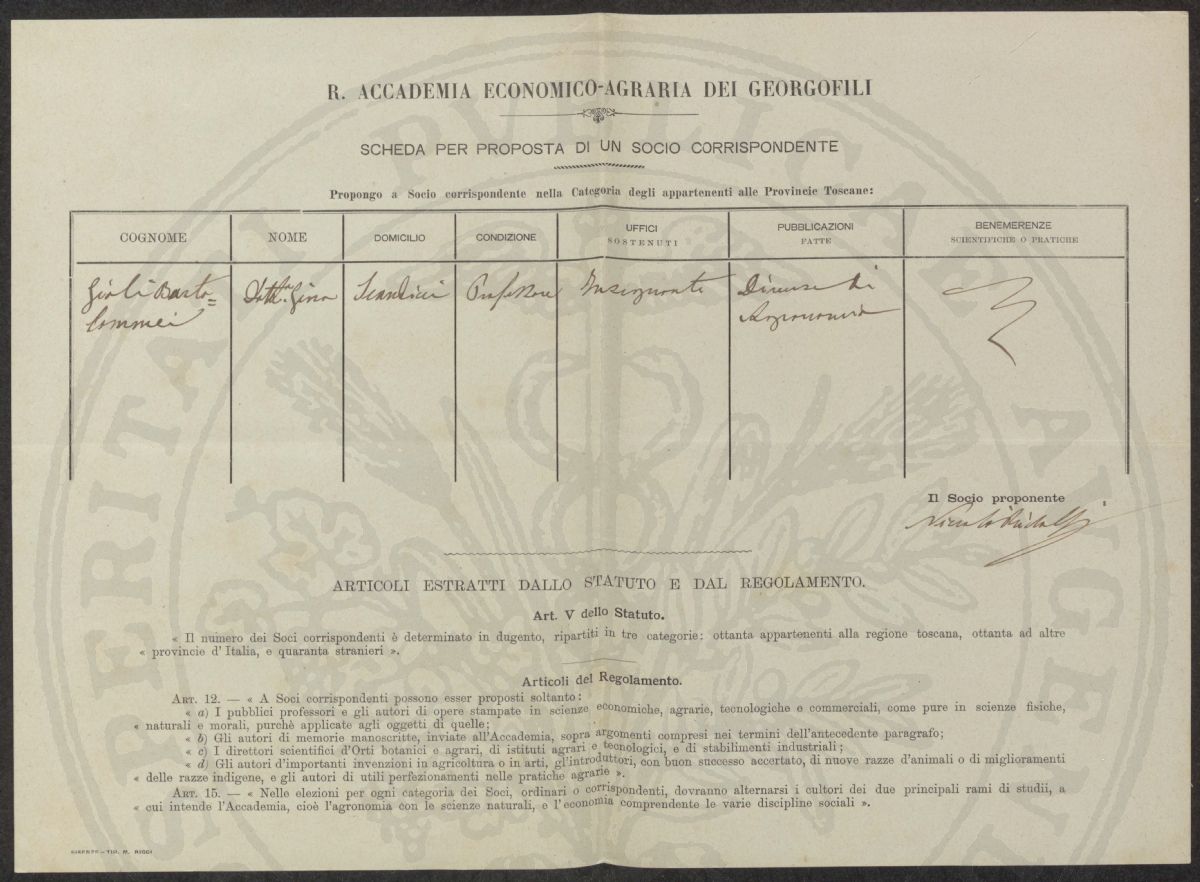 R. ACCADEMIA ECONOMICO-AGRARIA DEI GEORGOFILI
SCHEDA PER PROPOSTA DI UN SOCIO CORRISPONDENTE
Propongo a Socio corrispondente nella Categoria degli appartenenti alle Provincie Toscane:
COGNOME NOME DOMICILIO CONDIZIONE UFFICI SOSTENUTI PUBBLICAZIONI FATTE BENEMERENZE SCIENTIFICHE O PRATICHE
Gioli Barto= Gino Scandicci Professore Insegnante Diverse di
lommei Agronomia
Il Socio proponente
Niccolò Ridolfi
ARTICOLI ESTRATTI DALLO STATUTO E DAL REGOLAMENTO.
Art. V dello Statuto.
« Il numero dei Soci corrispondenti è determinato in dugento, ripartiti in tre categorie: ottanta appartenenti alla regione toscana, ottanta ad altre
« provincie d' Italia, e quaranta stranieri ».
Articoli del Regolamento.
ART. 12. — « A Soci corrispondenti possono esser proposti soltanto:
« a) I pubblici professori e gli autori di opere stampate in scienze economiche, agrarie, tecnologiche e commerciali, come pure in scienze fisiche,
« naturali e morali, purchè applicate agli oggetti di quelle;
« b) Gli autori di memorie manoscritte, inviate all'Accademia, sopra argomenti compresi nei termini dell'antecedente paragrafo;
« c) I direttori scientifici d'Orti botanici e agrari, di istituti agrari e tecnologici, e di stabilimenti industriali;
« d) Gli autori d'importanti invenzioni in agricoltura o in arti, gl'introduttori, con buon successo accertato, di nuove razze d'animali o di miglioramenti
« delle razze indigene, e gli autori di utili perfezionamenti nelle pratiche agrarie ».
ART. 15. — « Nelle elezioni per ogni categoria dei Soci, ordinari o corrispondenti, dovranno alternarsi i cultori dei due principali rami di studii, a
« cui intende l'Accademia, cioè l'agronomia con le scienze naturali, e l'economia comprendente le varie discipline sociali ».
FIRENZE — TIP. M. RICCI